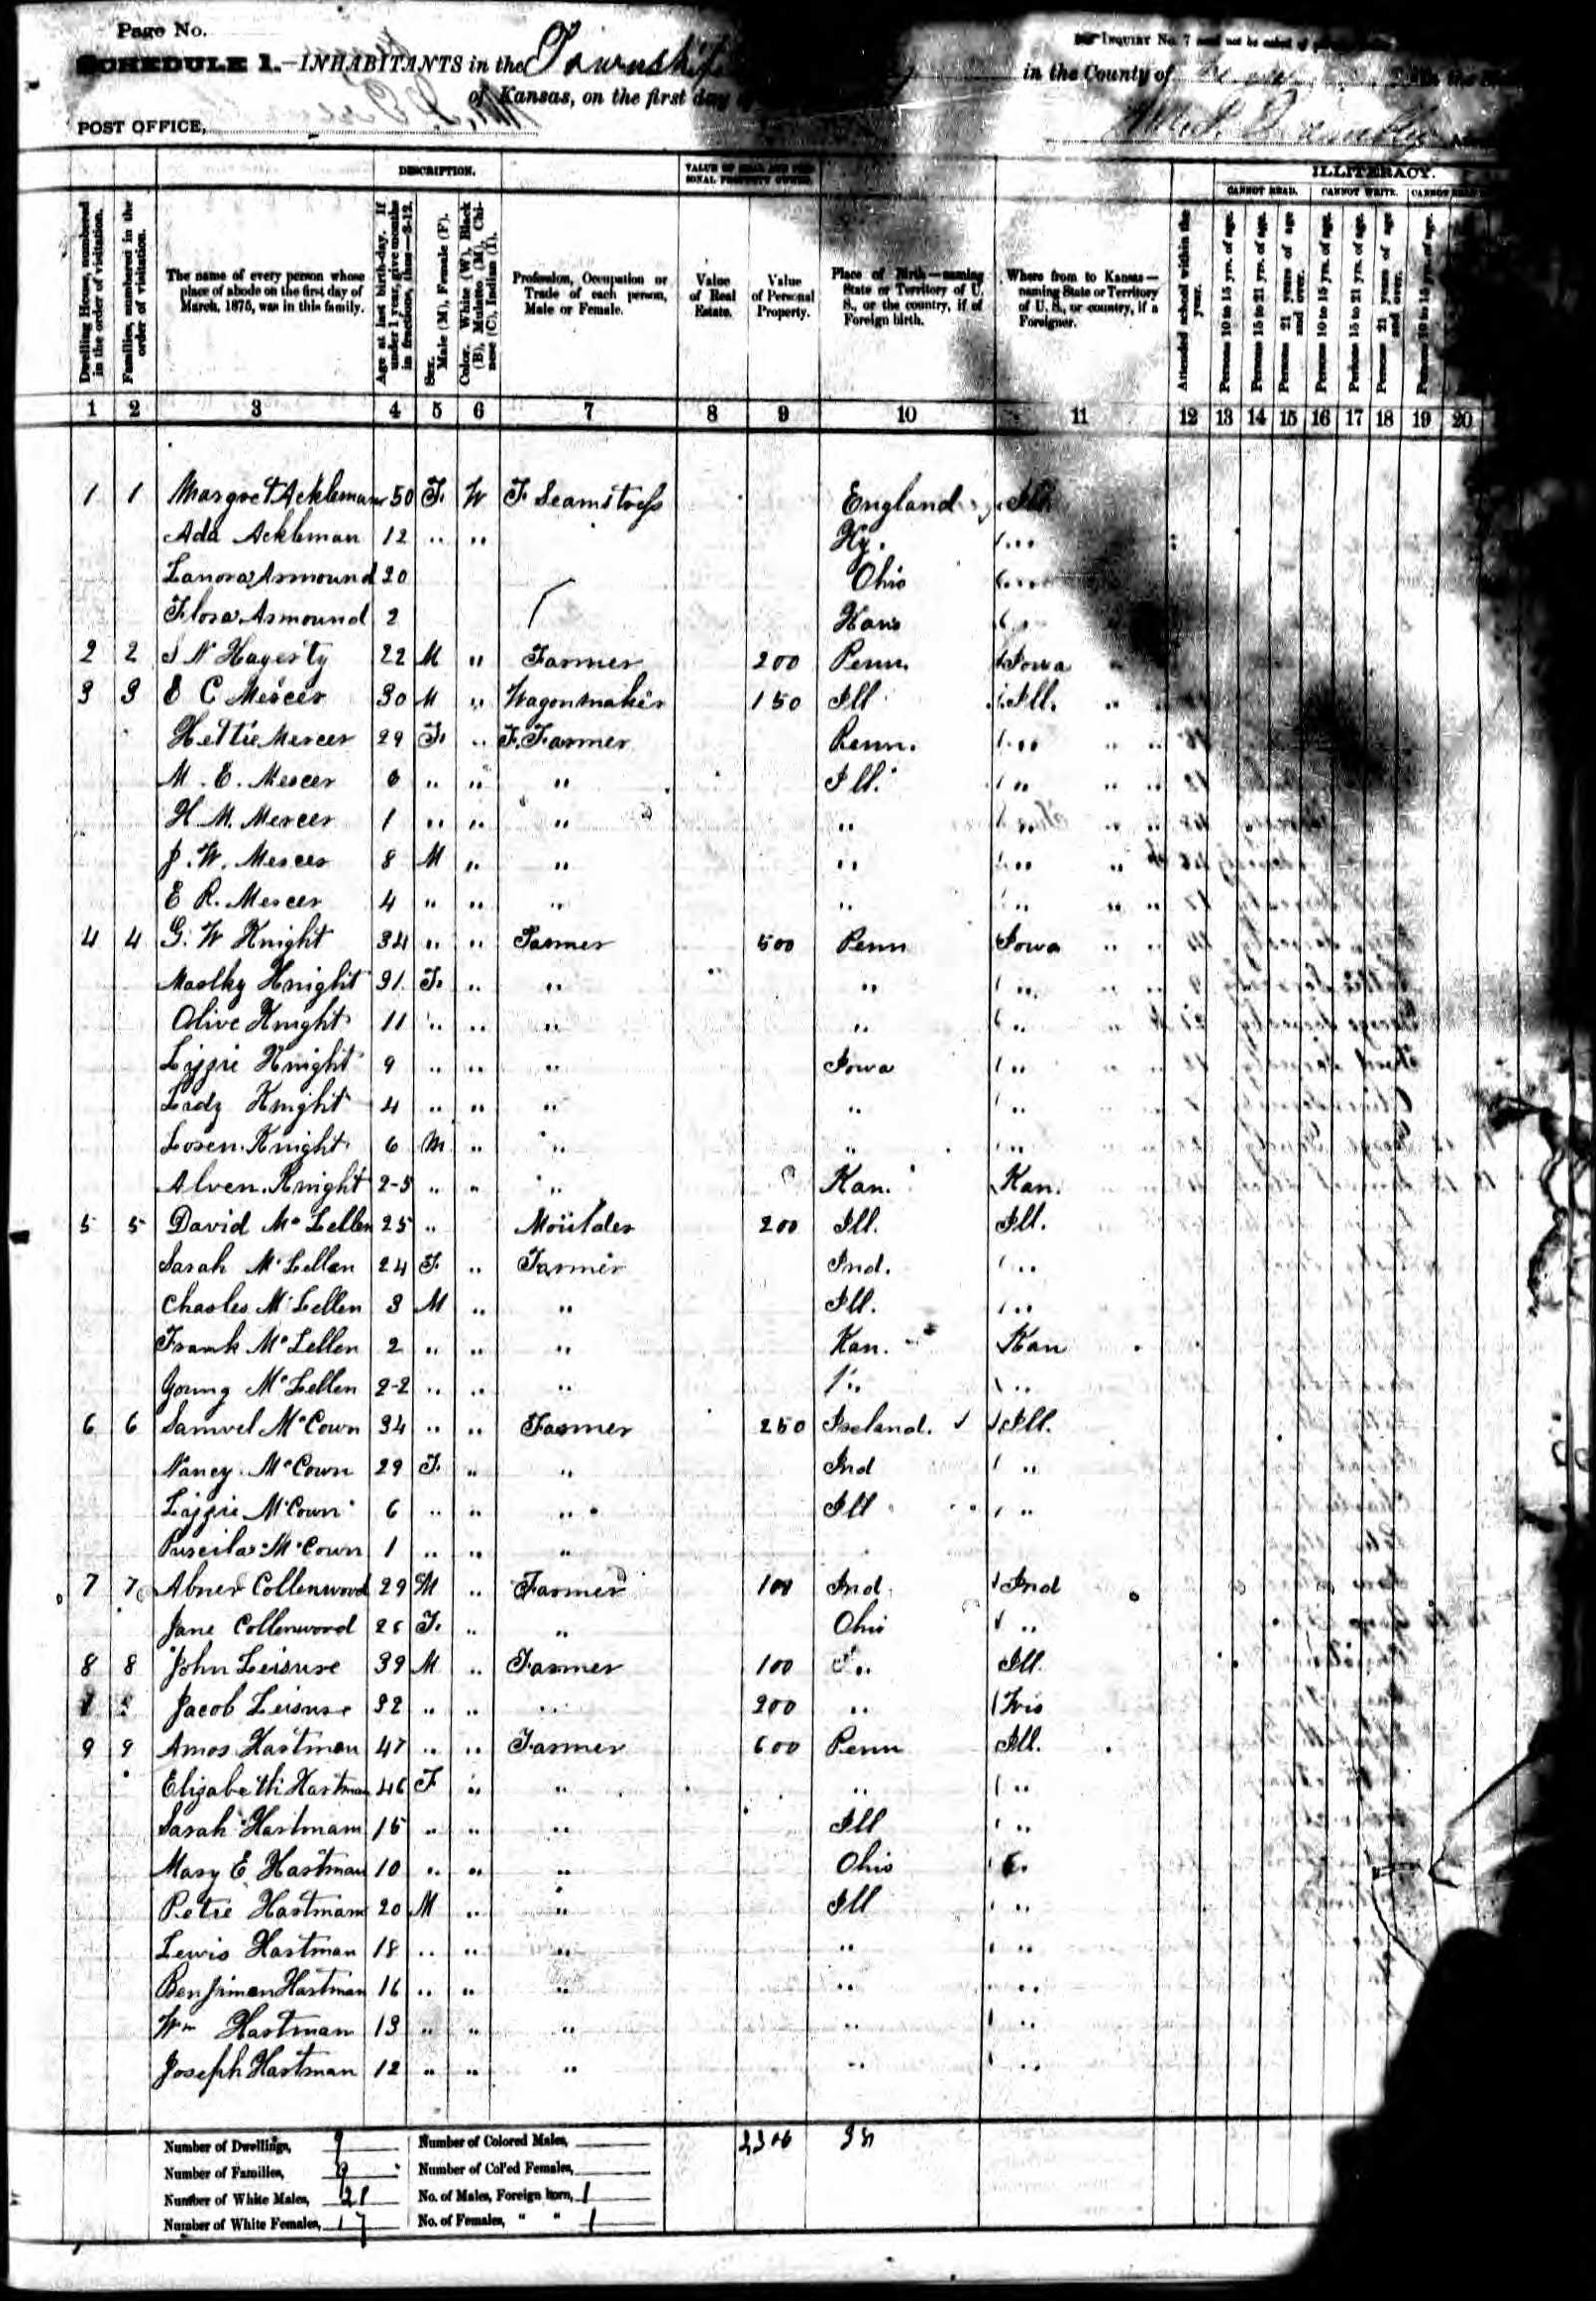 Page No.
INQUIRY No. 7
SCHEDULE 1.—INHABITANTS in the Township in the County of
of Kansas, on the first day
POST OFFICE,
DESCRIPTION. VALUE OF REAL AND PERSONAL PROPERTY OWNED. ILLITERACY.
CANNOT READ. CANNOT WRITE.
Dwelling House, numbered in the order of visitation.
Families, numbered in the order of visitation.
The name of every person whose place of abode on the first day of March, 1875, was in this family.
Age at last birth-day. If under 1 year, give months in fractions, thus—3-12.
Sex. Male (M), Female (F).
Color. White (W), Black (B), Mulatto (M), Chinese (C), Indian (I).
Profession, Occupation or Trade of each person, Male or Female.
Value of Real Estate.
Value of Personal Property.
Place of Birth—naming State or Territory of U. S., or the country, if of Foreign birth.
Where from to Kansas—naming State or Territory of U. S., or country, if a Foreigner.
Attended school within the year.
Persons 10 to 15 yrs. of age.
Persons 15 to 21 yrs. of age.
Persons 21 years of age and over.
Persons 10 to 15 yrs. of age.
Persons 15 to 21 yrs. of age.
Persons 21 years of age and over.
Persons 10 to 15 yrs. of age.
1 2 3 4 5 6 7 8 9 10 11 12 13 14 15 16 17 18 19 20
1 1 Margret Ackleman 50 F. W F. Seamstress England Ill
Ada Ackleman 12 " " Ky. "
Lanora Armound 20 Ohio "
Flora Armound 2 Kans "
2 2 S N Hagerty 22 M " Farmer 200 Penn. Iowa
3 3 E C Mercer 30 M " Wagonmaker 150 Ill Ill.
Hettie Mercer 29 F. " F. Farmer Penn. "
M. E. Mercer 6 " " " Ill. "
H. M. Mercer 1 " " " " "
J. W. Mercer 8 M " " " "
E R. Mercer 4 " " " " "
4 4 G. W Knight 34 " " Farmer 500 Penn Iowa
Knight 31 F. " " " "
Olive Knight 11 " " " " "
Lizzie Knight 9 " " " Iowa "
Knight 4 " " " " "
Loren Knight 6 M " " " "
Alven Knight 2-5 " " " Kan. Kan.
5 5 David McLellen 25 " Moulder 200 Ill. Ill.
Sarah McLellen 24 F " Farmer Ind. "
Charles McLellen 3 M " " Ill. "
Frank McLellen 2 " " " Kan. Kan
Young McLellen 2-2 " " " " "
6 6 Samuel McCown 34 " " Farmer 250 Ireland. Ill.
Nancy McCown 29 F. " " Ind "
Lizzie McCown 6 " " " Ill "
Priscila McCown 1 " " "
7 7 Abner Collenwood 29 M " Farmer 100 Ind. Ind
Jane Collenwood 26 F. " " Ohio "
8 8 John Leisure 39 M " Farmer 100 " Ill.
Jacob Leisure 32 " " " 200 "
9 9 Amos Hartman 47 " " Farmer 600 Penn Ill.
Elizabeth Hartman 46 F " " " "
Sarah Hartman 15 " " " Ill "
Mary E. Hartman 10 " " " Ohio "
Petre Hartman 20 M " " Ill "
Lewis Hartman 18 " " " " "
Benjiman Hartman 16 " " " " "
Wm Hartman 13 " " " " "
Joseph Hartman 12 " " " " "
Number of Dwellings, 9 Number of Colored Males,
Number of Families, 9 Number of Col'ed Females,
Number of White Males, 21 No. of Males, Foreign born, 1
Number of White Females, 17 No. of Females, " " 1